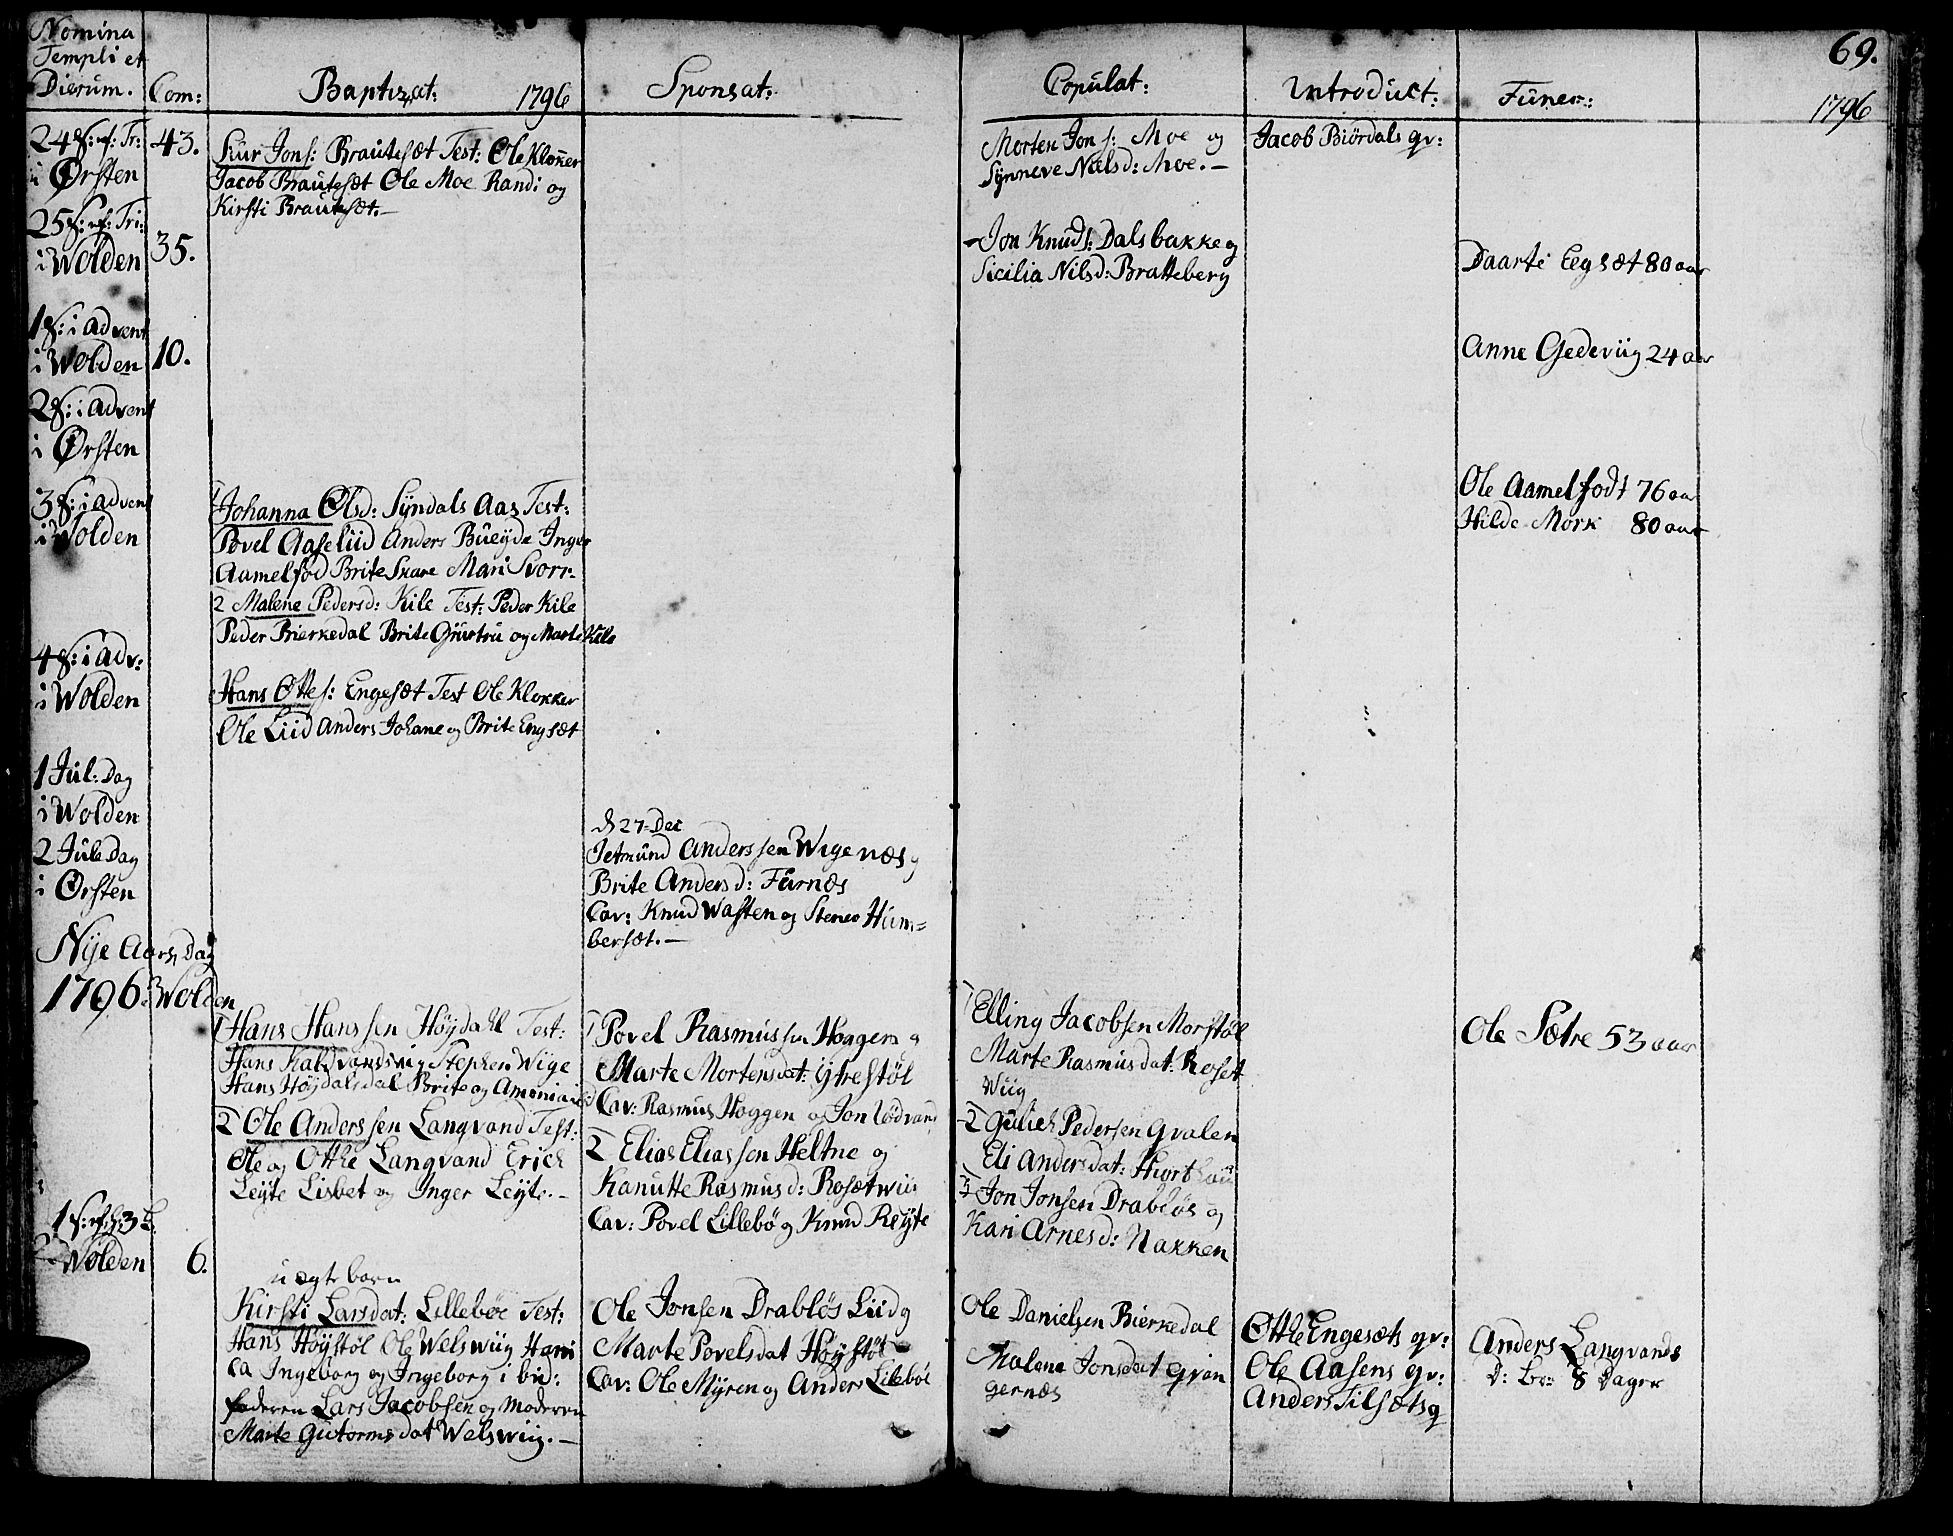 Nomina
Templi et
Dierum.
Com:
Baptizat: 1796
Sponsat:
Copulat:
Introduct:
Funer:
1796
69.
24 S: ef: Tr:
i Ørsten
43.
Siur Jons: Brautesæt Test: Ole Klokker
Jacob Brautesæt Ole Moe Randi og
Kirsti Brautesæt.—
Morten Jons: Moe og
Synneve Nilsd: Moe.—
Jacob Biördals qv:
25 S: ef: Tri:
i Wolden
35.
Jon Knuds: Dalsbakke og
Sicilia Nilsd: Bratteberg
Daarte Eegsæt 80 aar
1 S: i advent
i Wolden
10.
Anne Gedeviig 24 aar
2 S: i advent
i Ørsten
3 S: i advent
i Wolden
1 Johanna Olsd: Syndals Aas Test:
Povel Aaseliid Anders Bueyde Inger
Aamelfod Brite Skare Mari Svorr-
2 Malene Pedersd: Kile Test: Peder Kile
Peder Bierkedal Brite Giurtru og Marte Kile
Ole Aamelfodt 76 aar
Hilde Mork 80 aar
4 S: i adv:
i Wolden
Hans Ottes: Engesæt Test Ole Klokker
Ole Liid Anders Johane og Brite Engsæt
1 Jul: Dag
i Wolden
2 Jule Dag
i Ørsten
d 27 Dec
Jetmund Anderssen Wigenæs og
Brite Andersd: Furnæs
Cav: Knud Wasten og Stener Hum=
bersæt.—
Nije Aars Dag
1796 i Wolden
1 Hans Hanssen Høydahl Test:
Hans Kaldvandsvig Stephen Wige
Hans Høydalsdal Brite og
2 Ole Anderssen Langvand Test:
Ole og Otthe Langvand Erich
Leyte Lisbet og Inger Leyte.—
1 Povel Rasmussen Hoggen og
Marte Mortensdat: Ytrestøl
Cav: Rasmus Hoggen og Jon Lødvand
2 Elias Eliassen Heltne og
Kanutte Rasmusd: Rosætwiig
Cav: Povel Lillebö og Knud Reyte
1 Elling Jacobsen Morstøl
Marte Rasmusdat: Roset
Wiig
2 Gulich Pedersen Qvalen
Eli Andersdat: Hiorthau
3 Jon Jonsen Drabløs og
Kari Arnesd: Nakken
Ole Sætre 53 aar
1 S: ef: h: 3 K:
i Wolden
6.
uægte barn
Kirsti Larsdat: Lillebøe Test:
Hans Høystøl Ole Welswiig Hani
ca Ingeborg og Ingeborg i bid:
faderen Lars Jacobsen og Moderen
Marte Gutormsdat Welswiig.—
Ole Jonsen Drabløs Liid og
Marte Povelsdat Høystøl
Cav: Ole Myren og Anders Lilebøe
Ole Danielsen Bierkedal
Malene Jonsdat Qvan
gernæs
Otthe Engesæts qv:
Ole Aasens qv:
Anders Tilsæts q
Anders Langvands
D: br: 8 Dager